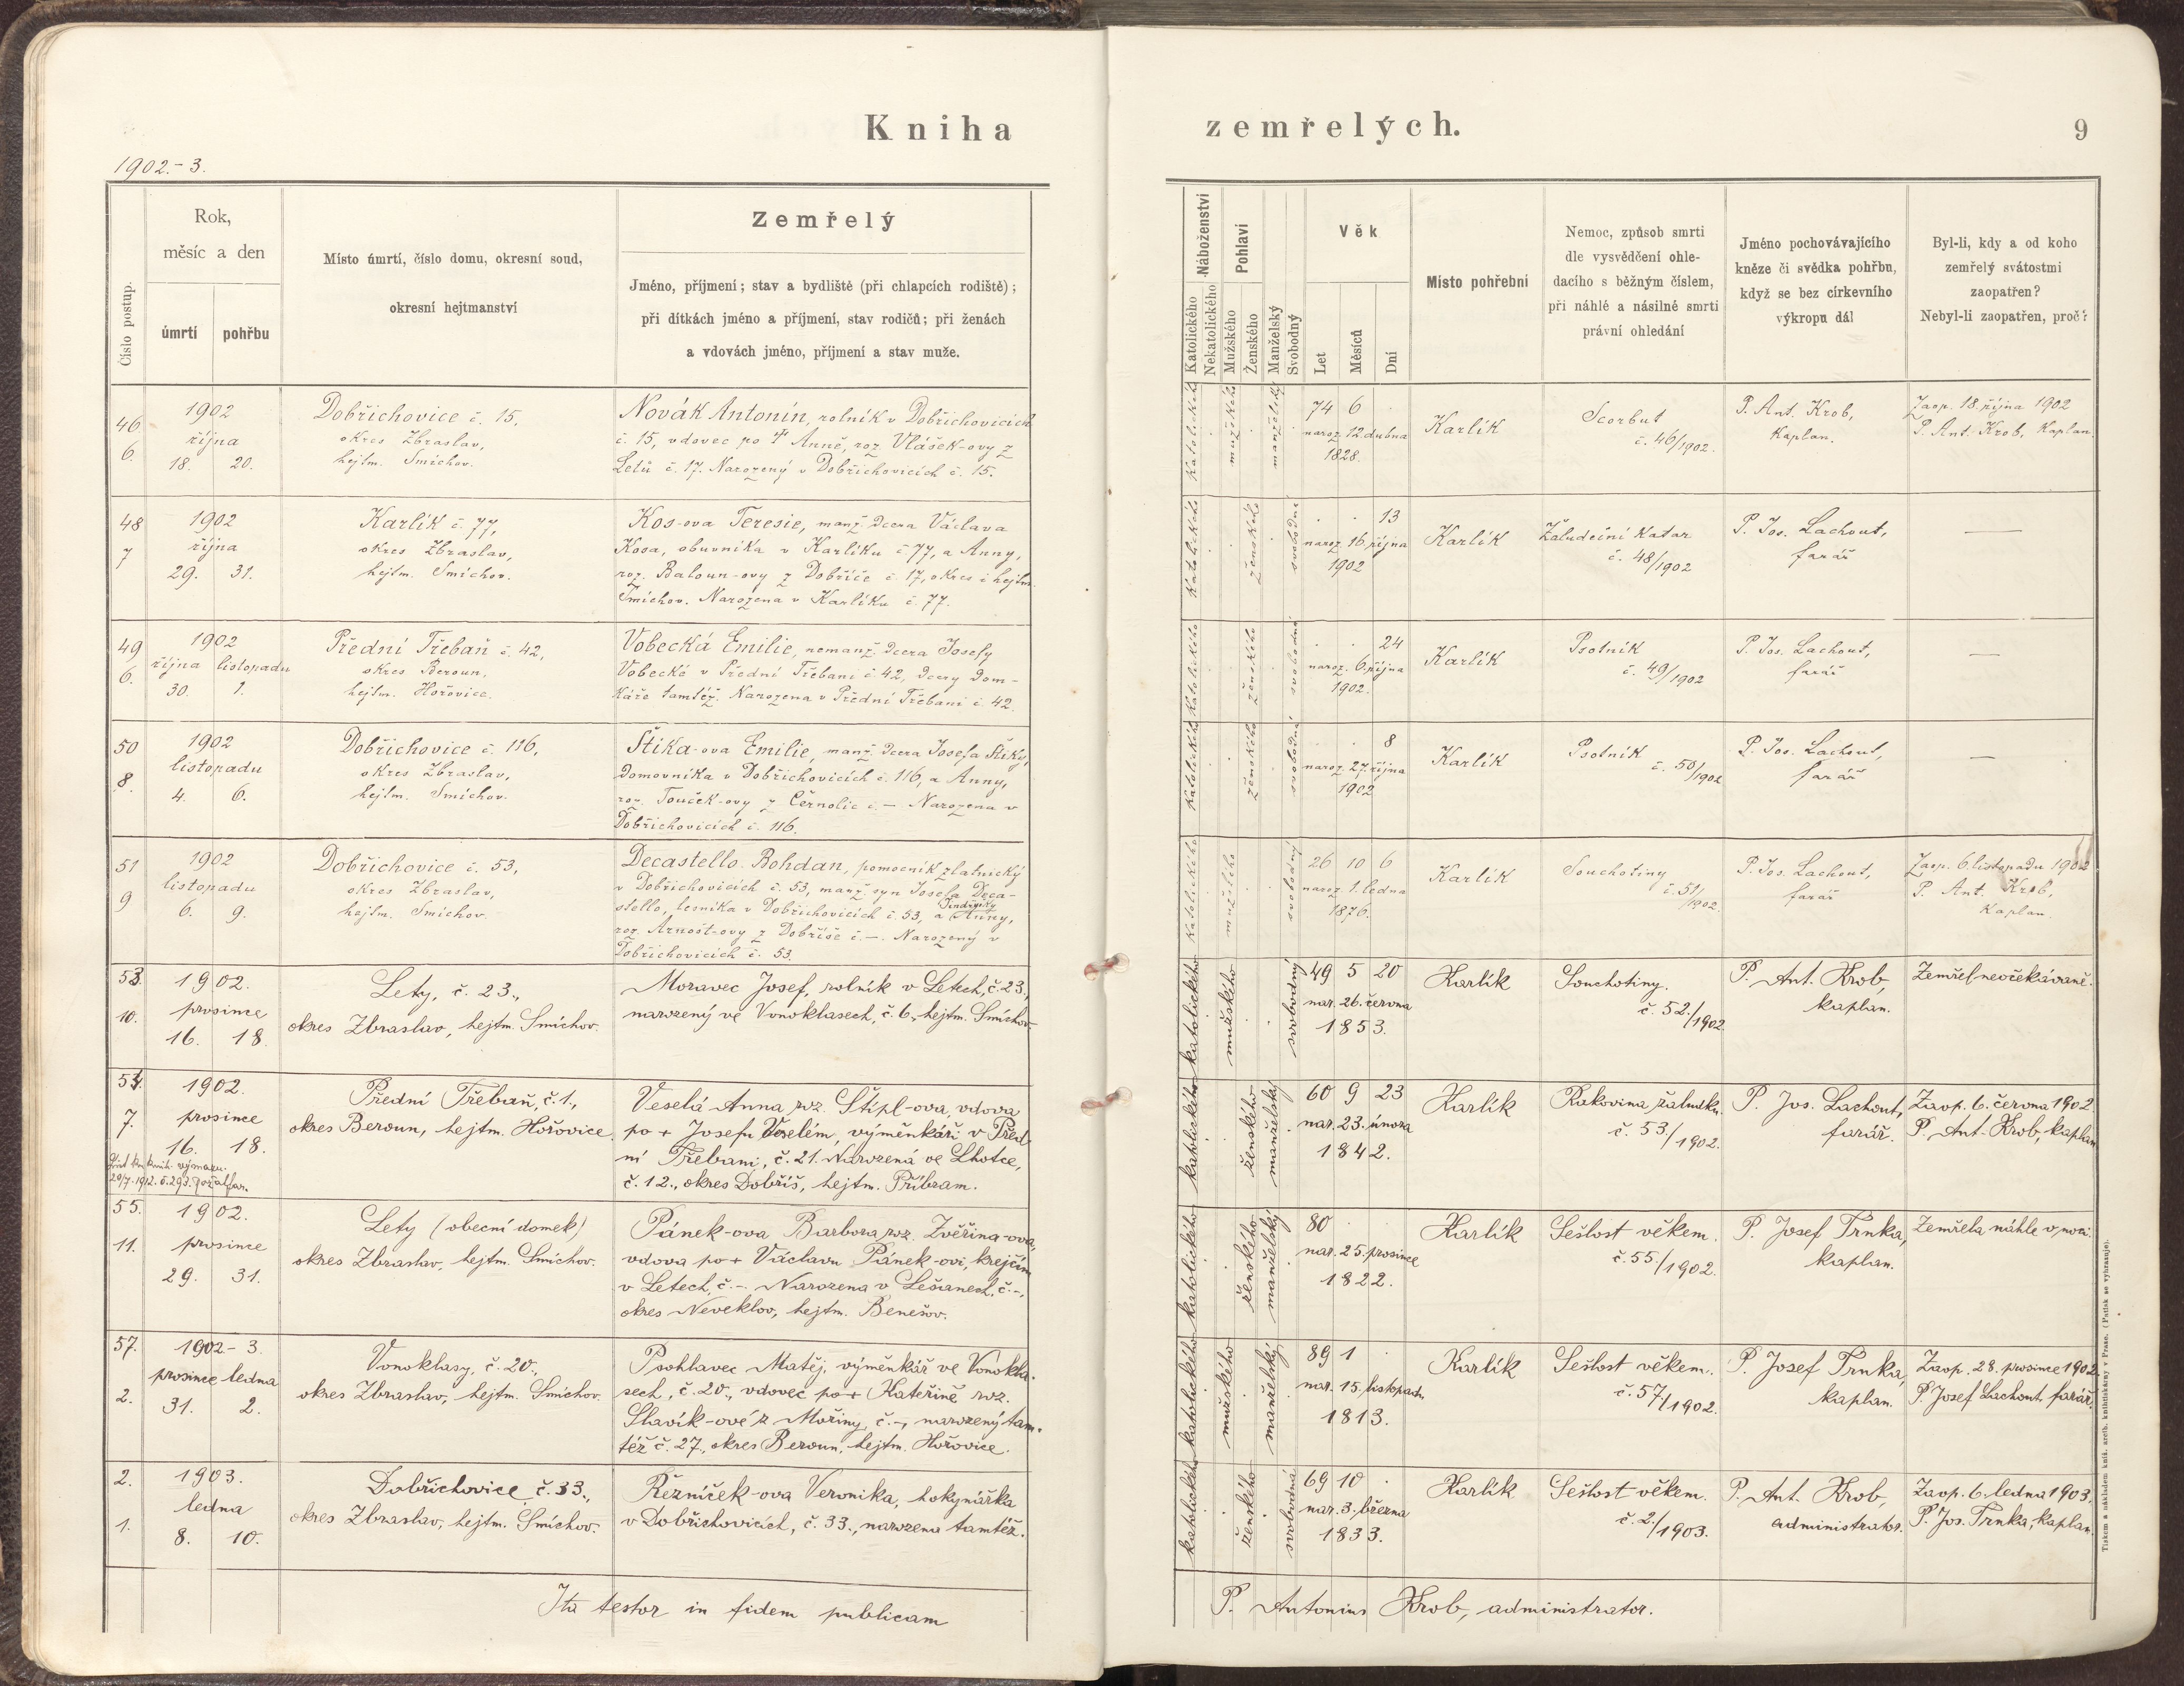 Kniha zemřelých.
9
1902.-3.
Číslo postup.
Rok,
měsíc a den
úmrtí pohřbu
Místo úmrtí, číslo domu, okresní soud,
okresní hejtmanství
Zemřelý
Jméno, příjmení; stav a bydliště (při chlapcích rodiště);
při dítkách jméno a příjmení, stav rodičů; při ženách
a vdovách jméno, příjmení a stav muže.
Náboženství
Katolického
Nekatolického
Pohlaví
Mužského
Ženského
Manželský
Svobodný
Věk
Let
Měsíců
Dní
Místo pohřební
Nemoc, způsob smrti
dle vysvědčení ohle-
dacího s běžným číslem,
při náhlé a násilné smrti
právní ohledání
Jméno pochovávajícího
kněze či svědka pohřbu,
když se bez církevního
výkropu dál
Byl-li, kdy a od koho
zemřelý svátostmi
zaopatřen?
Nebyl-li zaopatřen, proč?
46
6.
1902
října
18. 20.
Dobřichovice č. 15,
okres Zbraslav,
hejtm. Smíchov.
Novák Antonín, rolník v Dobřichovicích
č. 15, vdovec po † Anně, roz. Vlášek-ovy z
Letů č. 17. Narozený v Dobřichovicích č. 15.
katolického
mužského
manželský
74 6 .
naroz. 12. dubna
1828.
Karlík
Scorbut
č. 46/1902.
P. Ant. Krob,
kaplan.
Zaop. 18. října 1902
P. Ant. Krob, kaplan.
48
7
1902
října
29. 31.
Karlík č. 77,
okres Zbraslav,
hejtm. Smíchov.
Kos-ova Teresie, manž. dcera Václava
Kosa, obuvníka v Karlíku č. 77, a Anny,
roz. Baloun-ovy z Dobříče č. 17, okres i hejtm.
Smíchov. Narozena v Karlíku č. 77.
katolického
ženského
svobodná
. . 13
naroz. 16. října
1902
Karlík
Žaludeční katar
č. 48/1902
P. Jos. Lachout,
farář
—
49
6.
1902
října listopadu
30. 1.
Přední Třebaň č. 42,
okres Beroun,
hejtm. Hořovice.
Vobecká Emilie, nemanž. dcera Josefy
Vobecké v Přední Třebani č. 42, dcery dom-
káře tamtéž. Narozena v Přední Třebani č. 42.
katolického
ženského
svobodná
. . 24
naroz. 6. října
1902.
Karlík
Psotník
č. 49/1902
P. Jos. Lachout,
farář
—
50
8.
1902
listopadu
4. 6.
Dobřichovice č. 116,
okres Zbraslav,
hejtm. Smíchov.
Štika-ova Emilie, manž. dcera Josefa Štiky,
domovníka v Dobřichovicích č. 116, a Anny,
roz. Touček-ovy z Černolic č. —. Narozena v
Dobřichovicích č. 116.
katolického
ženského
svobodná
. . 8
naroz. 27. října
1902
Karlík
Psotník
č. 50/1902
P. Jos. Lachout,
farář
—
51
9
1902
listopadu
6. 9.
Dobřichovice č. 53,
okres Zbraslav,
hejtm. Smíchov.
Decastello Bohdan, pomocník zlatnický
v Dobřichovicích č. 53, manž. syn Josefa Deca-
stello, lesníka v Dobřichovicích č. 53, a Jindřišky Anny,
roz. Arnošt-ovy z Dobříše č. —. Narozený v
Dobřichovicích č. 53.
katolického
mužského
svobodný
26 10 6
naroz. 1. ledna
1876.
Karlík
Souchotiny
č. 51/1902.
P. Jos. Lachout,
farář
Zaop. 6. listopadu 1902
P. Ant. Krob,
kaplan.
53.
10.
1902.
prosince
16. 18.
Lety, č. 23.,
okres Zbraslav, hejtm. Smíchov.
Moravec Josef, rolník v Letech, č. 23.,
narozený ve Vonoklasech, č. 6., hejtm. Smíchov.
katolického
mužského
svobodný
49 5 20
nar. 26. června
1853.
Karlík
Souchotiny.
č. 52./1902
P. Ant. Krob,
kaplan.
Zemřel neočekávaně.
54.
7.
1902.
prosince
16. 18.
20/7. 1912. č. 293.
Přední Třebaň, č. 1.,
okres Beroun, hejtm. Hořovice.
Veselá Anna, roz. Štípl-ova, vdova
po + Josefu Veselém, výměnkáři v Před-
ní Třebani, č. 21. Narozená ve Lhotce,
č. 12., okres Dobříš, hejtm. Příbram.
katolického
ženského
manželský
60 9 23
nar. 23. února
1842.
Karlík
Rakovina žaludku.
č. 53/1902.
P. Jos. Lachout,
farář.
Zaop. 6. června 1902.
P. Ant. Krob, kaplan
55.
11.
1902.
prosince
29. 31.
Lety (obecní domek)
okres Zbraslav, hejtm. Smíchov.
Pánek-ova Barbora, roz. Zvěřina-ova,
vdova po + Václavu Pánek-ovi, krejčím
v Letech, č. -. Narozena v Lešanech, č. -.,
okres Neveklov, hejtm. Benešov.
katolického
ženského
manželský
80 . .
nar. 25. prosince
1822.
Karlík
Sešlost věkem.
č. 55./1902.
P. Josef Trnka,
kaplan.
Zemřela náhle v noci.
57.
2.
1902.- 3.
prosince ledna
31. 2.
Vonoklasy, č. 20.,
okres Zbraslav, hejtm. Smíchov.
Psohlavec Matěj, výměnkář ve Vonokla-
sech, č. 20., vdovec po + Kateřině roz.
Slavík-ové z Mořiny, č. -., narozený tam-
též č. 27., okres Beroun, hejtm. Hořovice.
katolického
mužského
manželský
89 1 .
nar. 15. listopadu
1813.
Karlík
Sešlost věkem.
č. 57/1902.
P. Josef Trnka,
kaplan.
Zaop. 28. prosince 1902.
P. Josef Lachout, farář.
2.
1.
1903.
ledna
8. 10.
Dobřichovice, č. 33.,
okres Zbraslav, hejtm. Smíchov.
Řezníček-ova Veronika, hokynářka
v Dobřichovicích, č. 33., narozena tamtéž.
katolického
ženského
svobodná
69 10 .
nar. 3. března
1833.
Karlík
Sešlost věkem.
č. 2./1903.
P. Ant. Krob,
administrator.
Zaop. 6. ledna 1903.
P. Jos. Trnka, kaplan.
Ita testor in fidem publicam
P. Antonius Krob, administrator.
Tiskem a nákladem kníž. arcib. knihtiskárny v Praze. (Patisk se vyhrazuje).